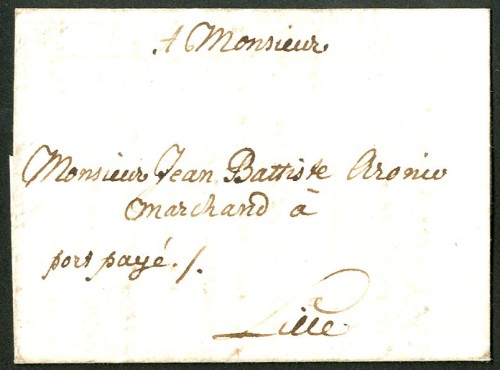 A Monsieur
Monsieur Jean Battiste Aronio
marchand à
port payé./.
Lille